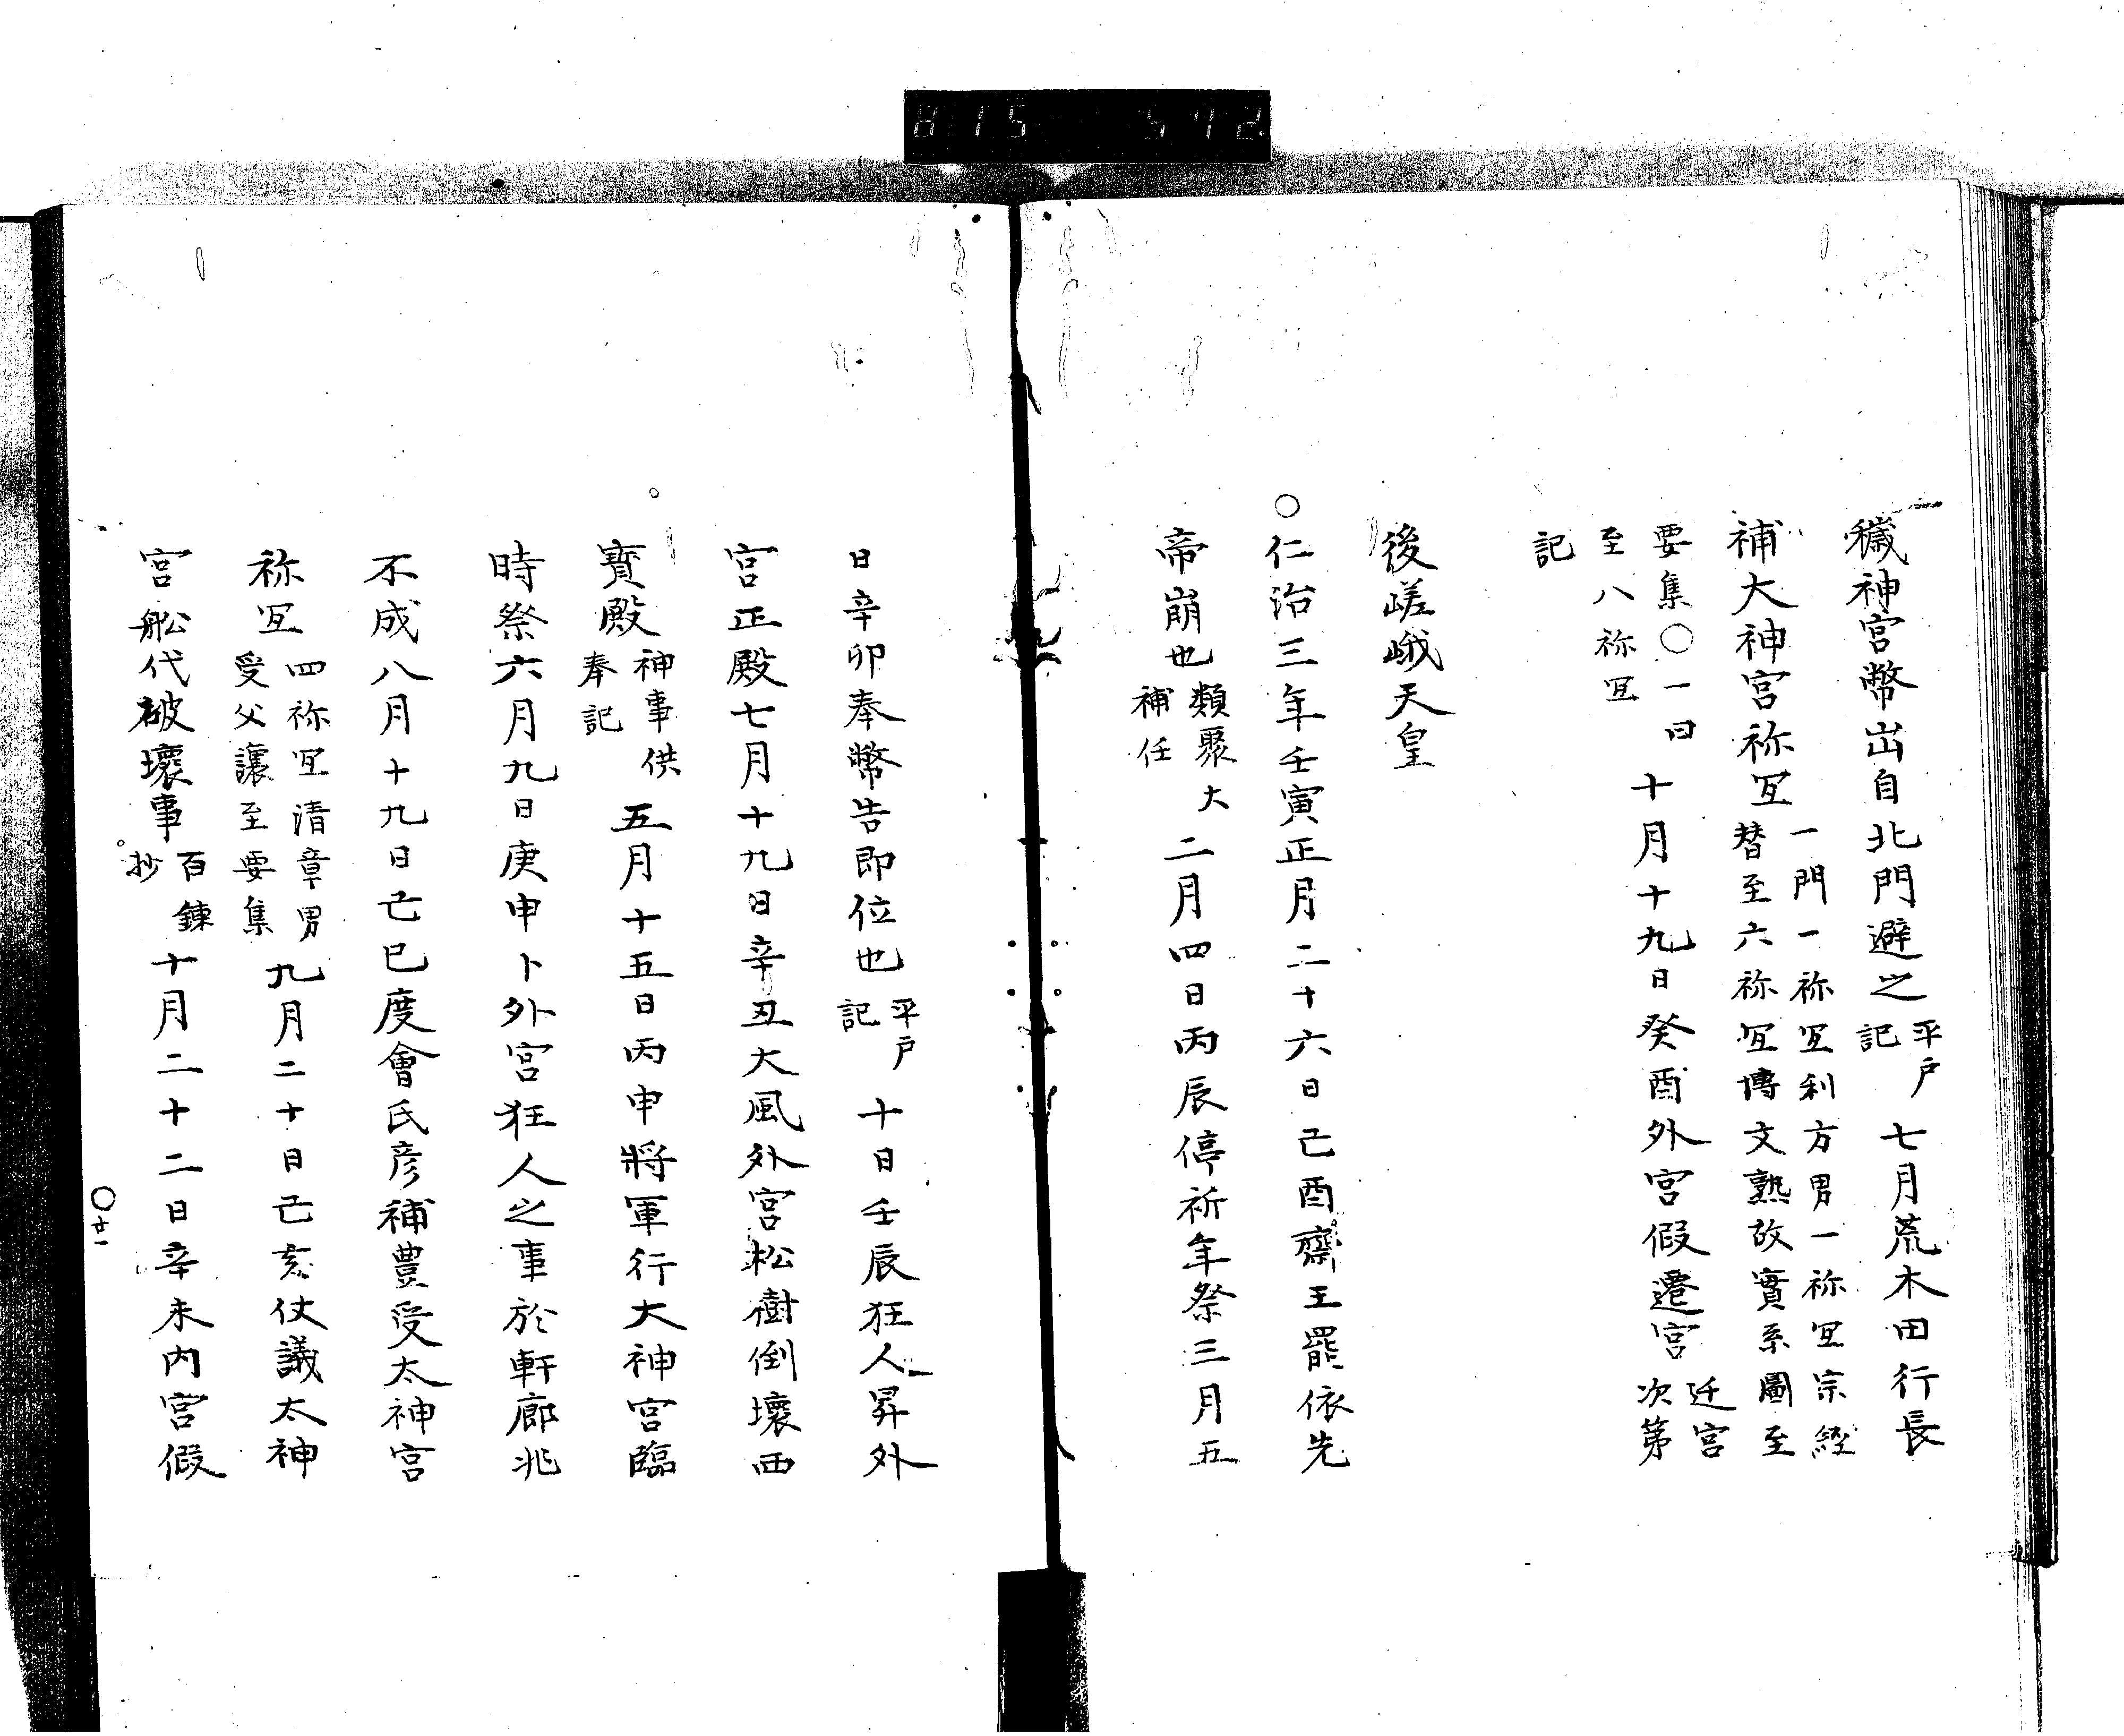 815 572
穢神宮幣出自北門避之平戸記七月荒木田行長
補大神宮祢冝一門一祢冝利方男一祢冝宗經替至六祢冝博文熟故實系圖至
要集〇一曰至八祢冝十月十九日癸酉外宮假遷宮迁宮次第
記
後嵯峨天皇
〇仁治三年壬寅正月二十六日己酉齋王罷依先
帝崩也類聚大補任二月四日丙辰停祈年祭三月五
日辛卯奉幣告即位也平戸記十日壬辰狂人昇外
宮正殿七月十九日辛丑大風外宮松樹倒壞西
寳殿神事供奉記五月十五日丙申將軍行大神宮臨
時祭六月九日庚申卜外宮狂人之事於軒廊兆
不成八月十九日己巳度會氏彦補豊受太神宮
祢冝四祢冝清章男受父讓至要集九月二十日己亥仗議太神
宮舩代破壞事百錬抄十月二十二日辛未内宮假
〇廿一